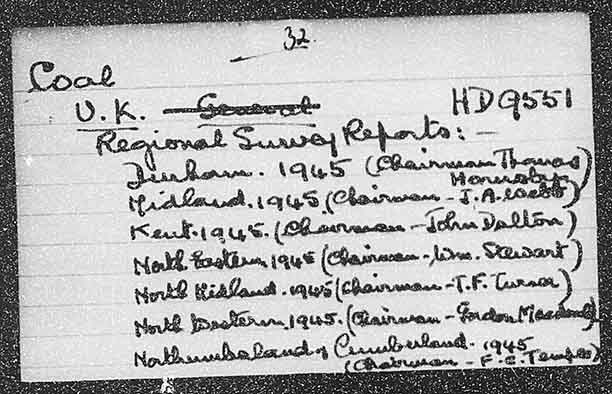 32.
Coal
U.K. General HD9551
Regional Survey Reports:-
Durham. 1945 (Chairman Thomas
Hornsby)
Midland. 1945 (Chairman - J.A. Webb)
Kent. 1945. (Chairman - John Dalton)
North Eastern 1945 (Chairman - Wm. Stewart)
North Midland. 1945 (Chairman - T.F. Turner)
North Western 1945. (Chairman - Gordon
Northumberland & Cumberland. 1945
(Chairman - F.C. Temple)